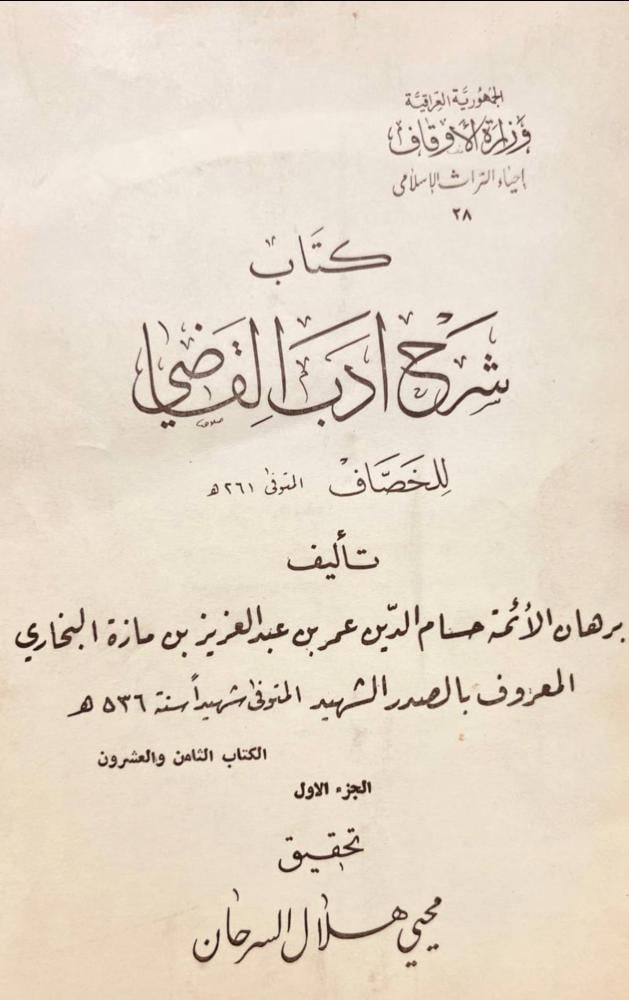 الجمهورية العراقية
وزارة الأوقاف
إحياء التراث الإسلامي
٢٨
كتاب
شرح أدب القاضي
للخصاف المتوفى ٢٦١ هـ
تأليف
برهان الأئمة حسام الدين عمر بن عبد العزيز بن مازة البخاري
المعروف بالصدر الشهيد المتوفى شهيداً سنة ٥٣٦ هـ
الكتاب الثامن والعشرون
الجزء الاول
تحقيق
محيي هلال السرحان